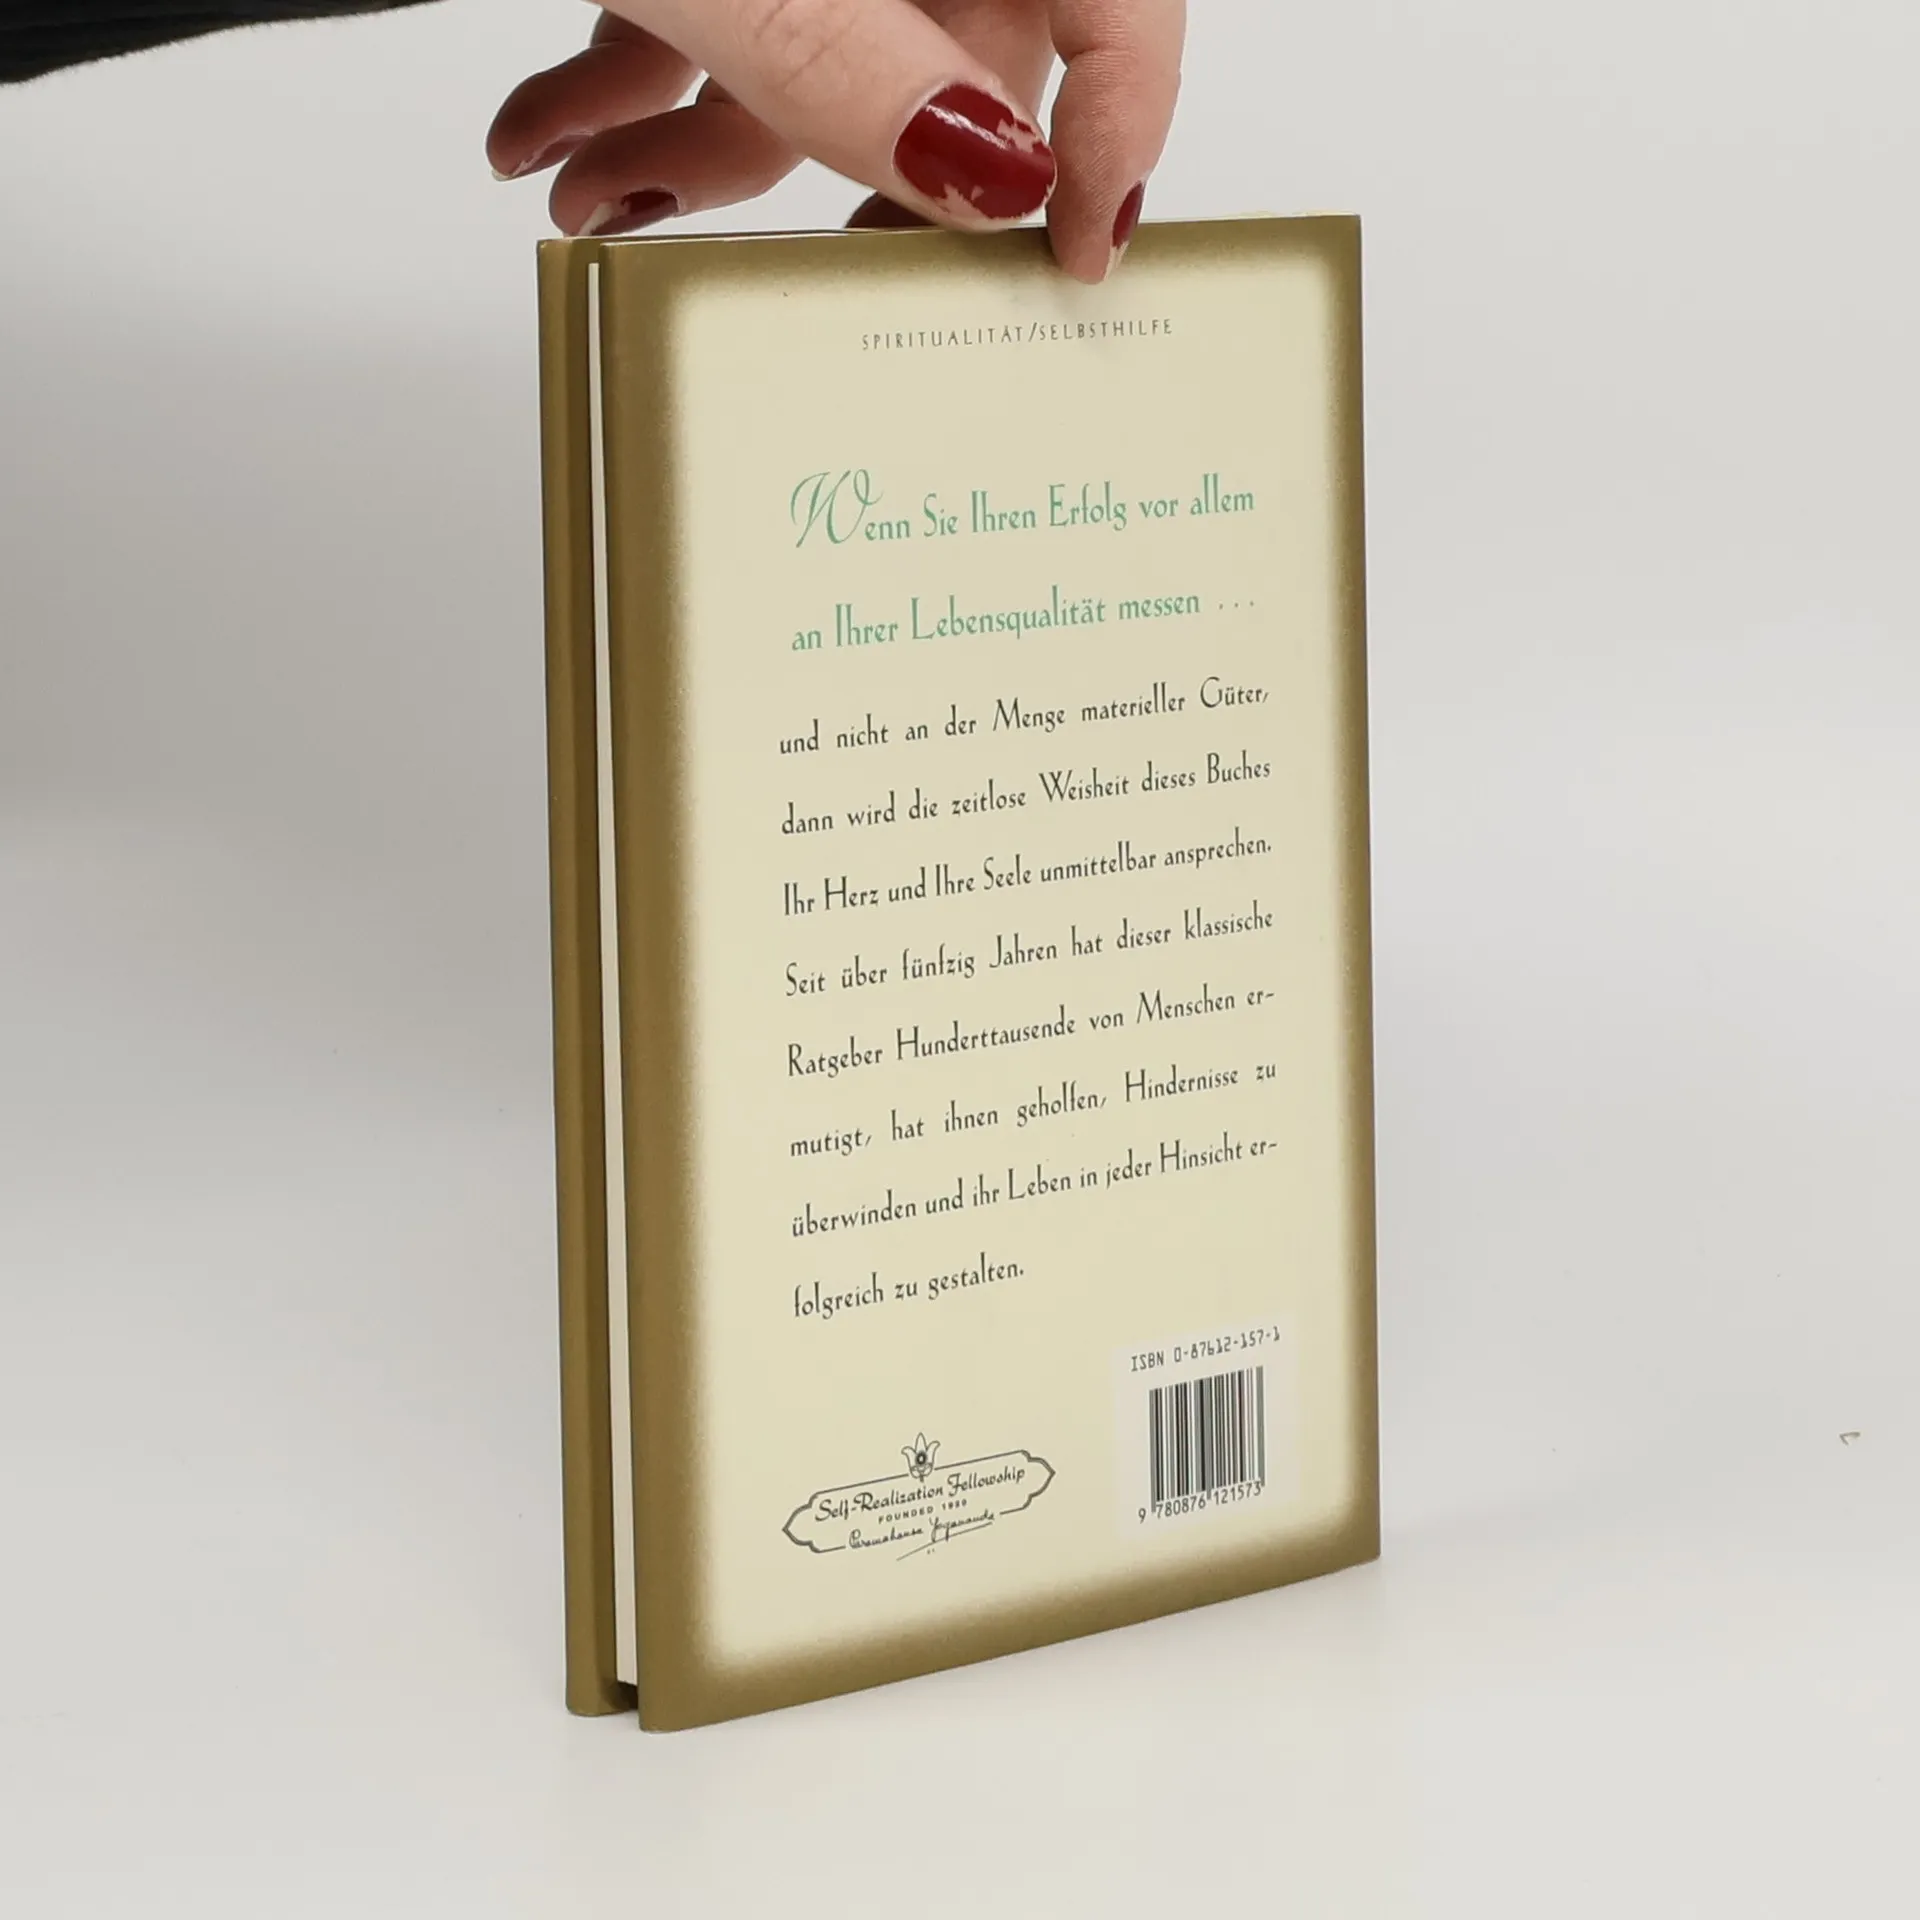 SPIRITUALITÄT/SELBSTHILFE
Wenn Sie Ihren Erfolg vor allem
an Ihrer Lebensqualität messen ...
und nicht an der Menge materieller Güter,
dann wird die zeitlose Weisheit dieses Buches
Ihr Herz und Ihre Seele unmittelbar ansprechen.
Seit über fünfzig Jahren hat dieser klassische
Ratgeber Hunderttausende von Menschen er-
mutigt, hat ihnen geholfen, Hindernisse zu
überwinden und ihr Leben in jeder Hinsicht er-
folgreich zu gestalten.
ISBN 0-87612-157-1
9 780876 121573
Self-Realization Fellowship
FOUNDED 1920
Paramahansa Yogananda